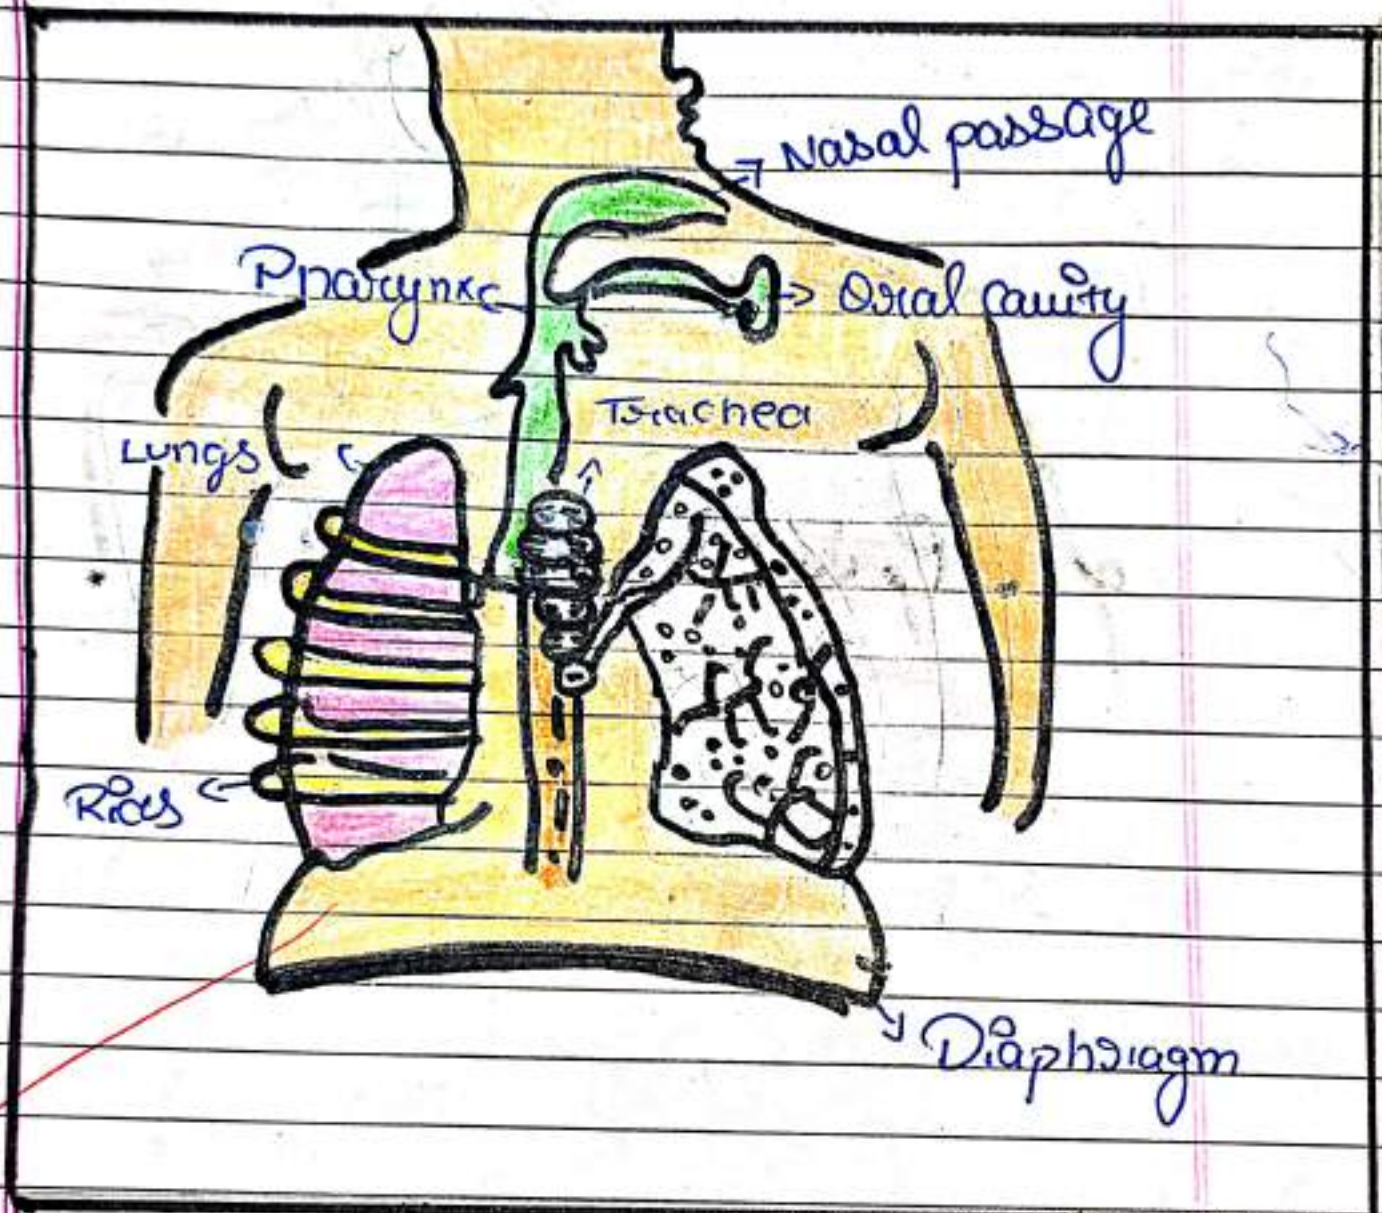 Nasal passage
Pharynx
Oral cavity
Trachea
Lungs
Ribs
Diaphragm